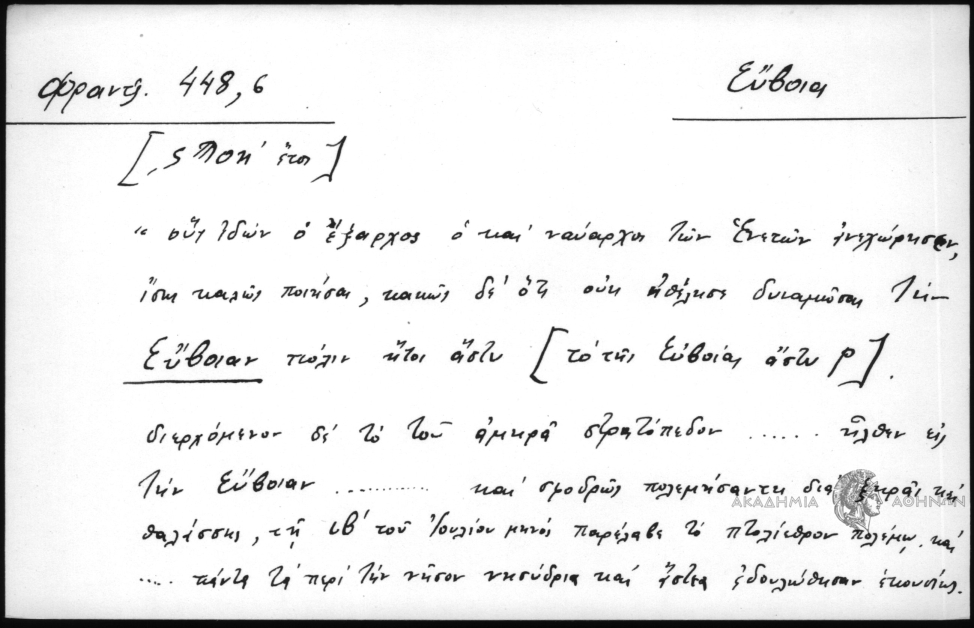 Φραντζ. 448, 6
Εὔβοια
[͵ςϠοη' ἔτει]
“ οὓς ἰδὼν ὁ ἔξαρχος ὁ καὶ ναύαρχος τῶν Ἑνετῶν ἀνεχώρησεν,
ἴσως καλῶς ποιήσας, κακῶς δὲ ὅτι οὐκ ἠθέλησε δυναμῶσαι τὴν
Εὔβοιαν πόλιν ἤτοι ἄστυ [τὸ τῆς Εὐβοίας ἄστυ P].
διερχόμενον δὲ τὸ τοῦ ἀμηρᾶ στρατόπεδον ...... ἦλθεν εἰς
τὴν Εὔβοιαν .......... καὶ σφοδρῶς πολεμήσαντες διὰ ξηρᾶς καὶ
ΑΚΑΔΗΜΙΑ ΑΘΗΝΩΝ
θαλάσσης, τῇ ιβ' τοῦ Ἰουλίου μηνὸς παρέλαβε τὸ πτολίεθρον πολέμῳ. καὶ
.... πάντα τὰ περὶ τὴν νῆσον νησύδρια καὶ ἄστεα ἐδουλώθησαν ἑκουσίως.